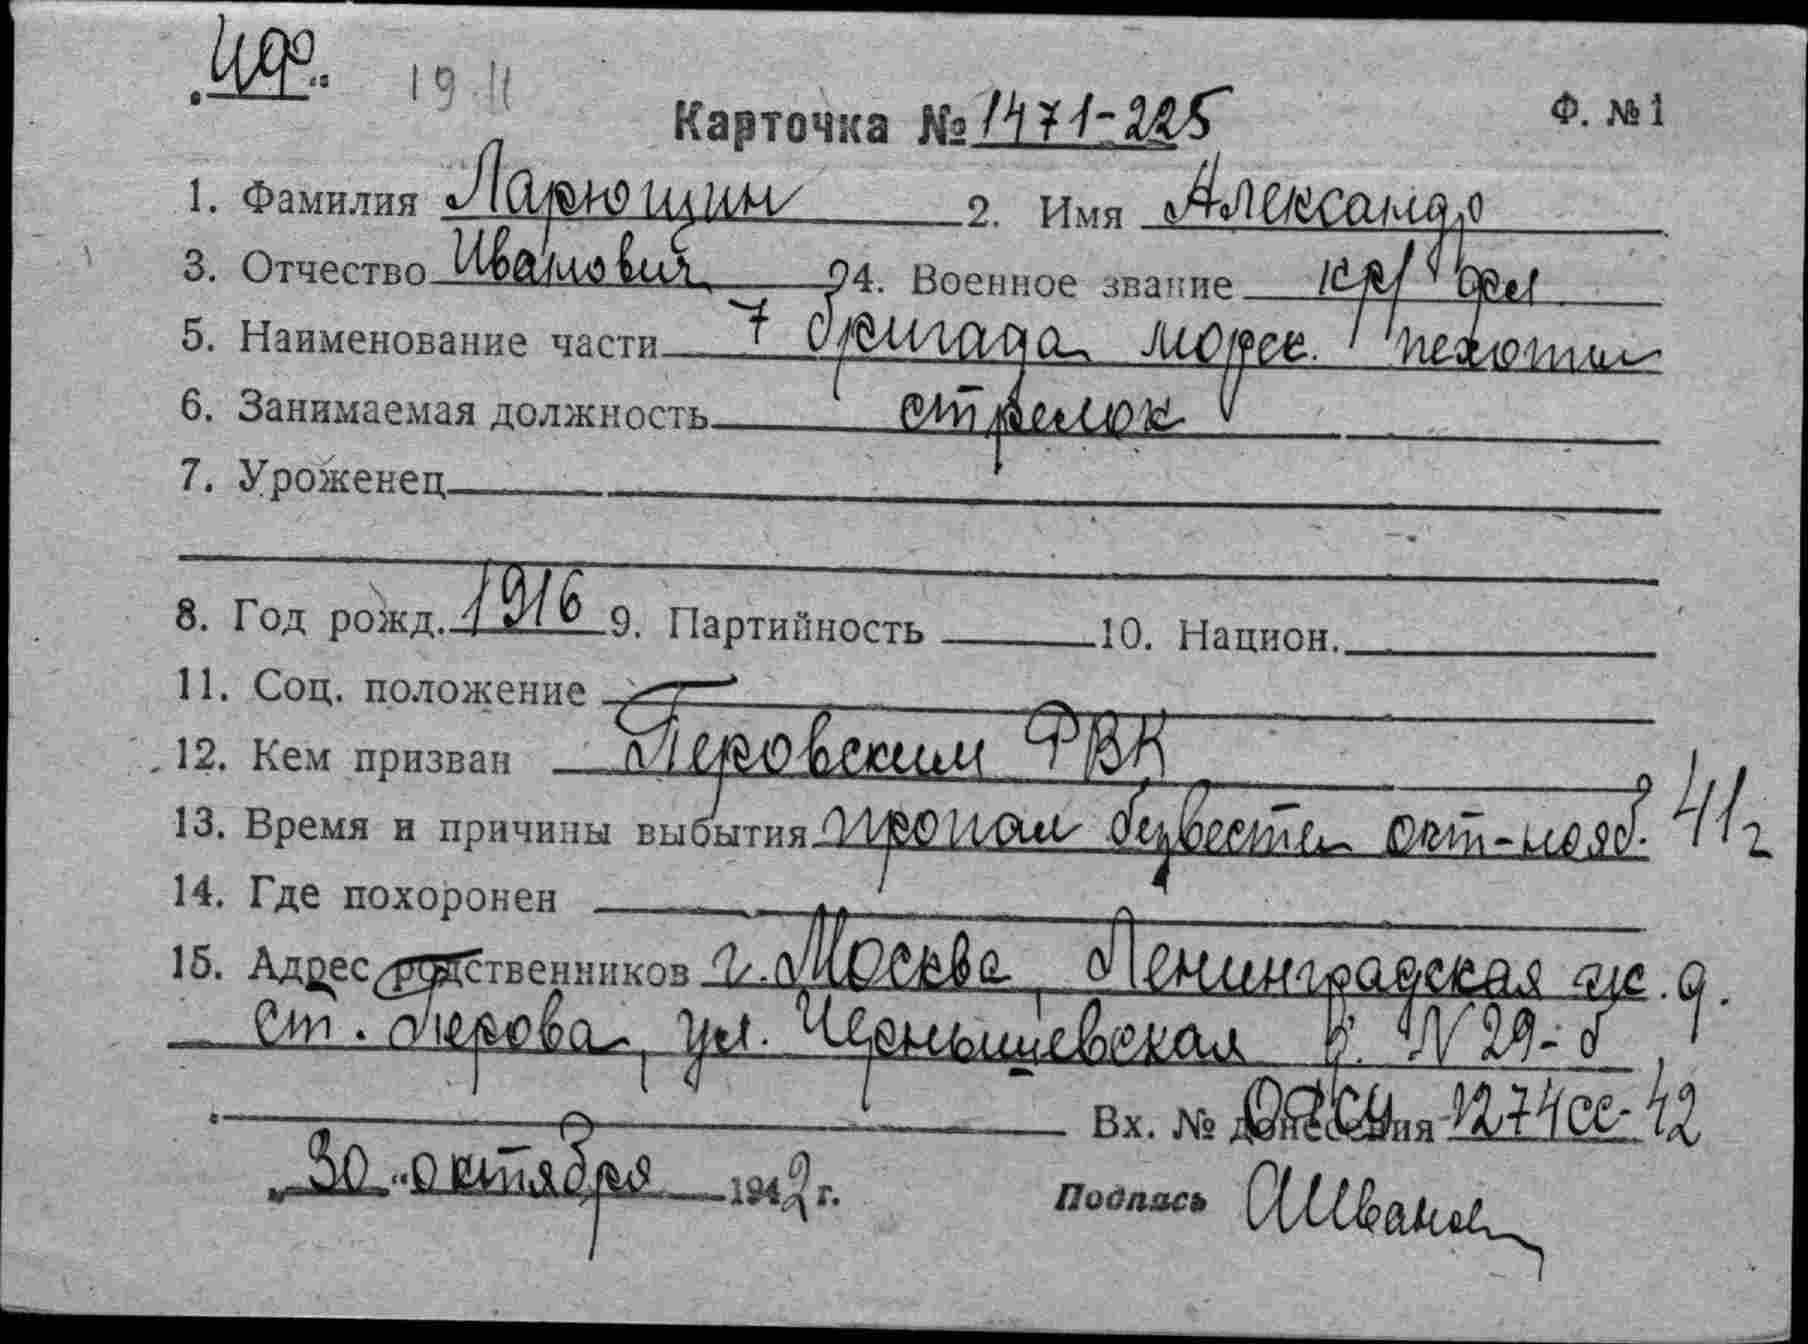 19 11
Карточка № 1471-225 Ф. № 1
1. Фамилия Ларюшин 2. Имя Александр
3. Отчество Иванович 4. Военное звание кр/
5. Наименование части 7 бригада морск. пехоты
6. Занимаемая должность стрелок
7. Уроженец
8. Год рожд. 1916 9. Партийность 10. Национ.
11. Соц. положение
12. Кем призван Перовским РВК
13. Время и причины выбытия пропал безвести окт-нояб. 41 г
14. Где похоронен
15. Адрес родственников г. Москва, Ленинградская ж.д.
ст. Перова, ул. Чернышевская № 29-б
Вх. № донесения 1274сс-42
„30" октября 1942 г. Подпись АИванов